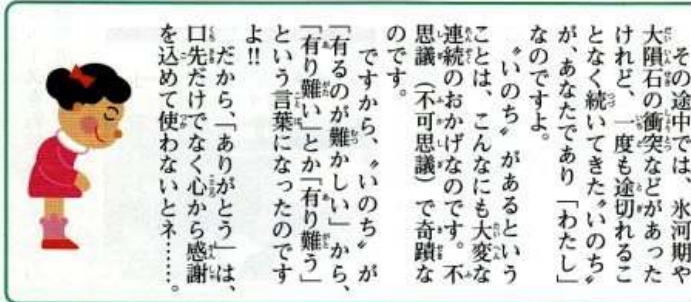 その途中では、氷河期や
大隕石の衝突などがあった
けれど、一度も途切れるこ
となく続いてきた〝いのち〟
が、あなたであり「わたし」
なのですよ。
〝いのち〟があるという
ことは、こんなにも大変な
連続のおかげなのです。不
思議（不可思議）で奇蹟な
のです。
ですから、〝いのち〟が
「有るのが難かしい」から、
「有り難い」とか「有り難う」
という言葉になったのです
よ!!
だから、「ありがとう」は、
口先だけでなく心から感謝
を込めて使わないとネ……。